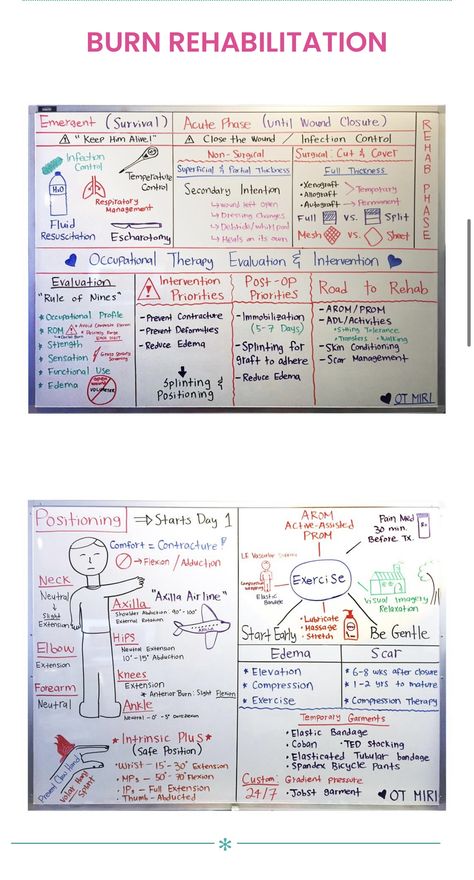 BURN REHABILITATION
Emergent (Survival)
"Keep Him Alive!"
Infection Control
Temperature Control
H2O
Respiratory Management
Fluid Resuscitation
Escharotomy
Acute Phase (until Wound Closure)
Close the Wound / Infection Control
Non-Surgical
Superficial & Partial Thickness
Secondary Intention
↳ wound left open
↳ Dressing Changes
↳ Debride/whirlpool
↳ Heals on its own
Surgical: Cut & Cover
Full Thickness
• Xenograft
• Allograft
> Temporary
• Autograft → Permanent
Full vs. Split
Mesh vs. Sheet
REHAB PHASE
Occupational Therapy Evaluation & Intervention
Evaluation
"Rule of Nines"
* Occupational Profile
* ROM
* Strength
* Sensation
* Functional Use
* Edema
Intervention Priorities
- Prevent Contracture
- Prevent Deformities
- Reduce Edema
Splinting & Positioning
Post-Op Priorities
- Immobilization
(5-7 Days)
- Splinting for graft to adhere
- Reduce Edema
Road to Rehab
- AROM/PROM
- ADL/Activities
• Sitting Tolerance
• Transfers • Walking
- Skin Conditioning
- Scar Management
OT MIRI
Positioning ⇒ Starts Day 1
Comfort = Contracture!
→ Flexion / Adduction
Neck
Neutral
→ Slight Extension
Elbow
Extension
Forearm
Neutral
Axilla "Axilla Airline"
Shoulder Abduction 90°-100°
External Rotation
Hips
Neutral Extension
10°-15° Abduction
Knees
Extension
* Anterior Burn: Slight Flexion
Ankle
Neutral
Prevent Claw Hand
Volar Hand Splint
* Intrinsic Plus *
(Safe Position)
• Wrist - 15-30° Extension
• MPs - 50°-70° Flexion
• IPs - Full Extension
• Thumb - Abducted
AROM
Active-Assisted
PROM
Pain Med
30 min.
Before Tx.
Elastic Bandage
Exercise
Visual Imagery
Relaxation
Start Early
• Lubricate
• Massage
• Stretch
Be Gentle
Edema
* Elevation
* Compression
* Exercise
Scar
* 6-8 wks after closure
* 1-2 yrs to mature
* Compression Therapy
Temporary Garments
• Elastic Bandage
• Coban • TED Stocking
• Elasticated Tubular bandage
• Spandex Bicycle Pants
Custom: Gradient pressure
24/7 • Jobst garment
OT MIRI